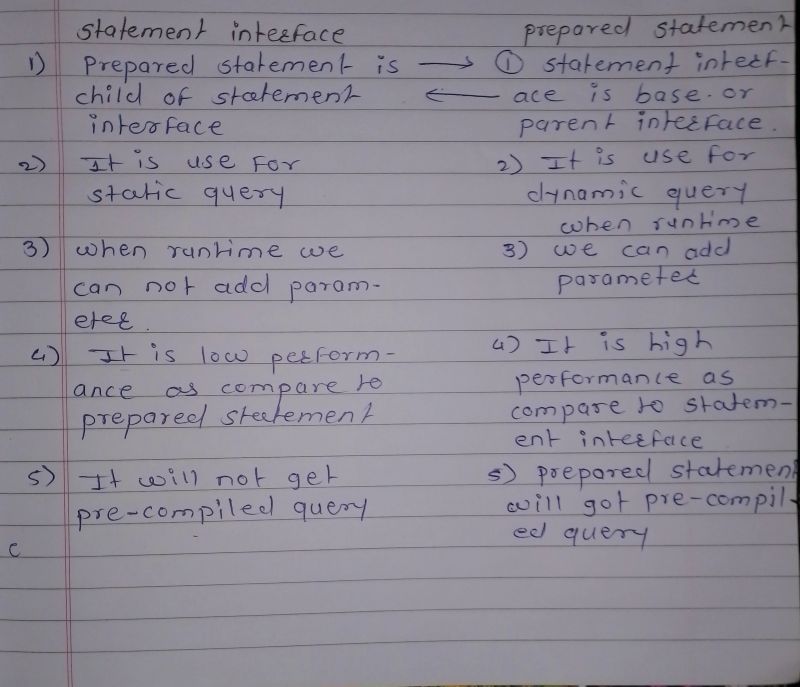 statement interface
1) Prepared statement is →
child of statement ←
interface
2) It is use for
static query
3) when runtime we
can not add param-
eter.
4) It is low perform-
ance as compare to
prepared stetement
5) It will not get
pre-compiled query
c
prepared statement
① statement interf-
ace is base. or
parent interface.
2) It is use for
dynamic query
when runtime
3) we can add
parameter
4) It is high
performance as
compare to statem-
ent interface
5) prepared statement
will got pre-compil-
ed query